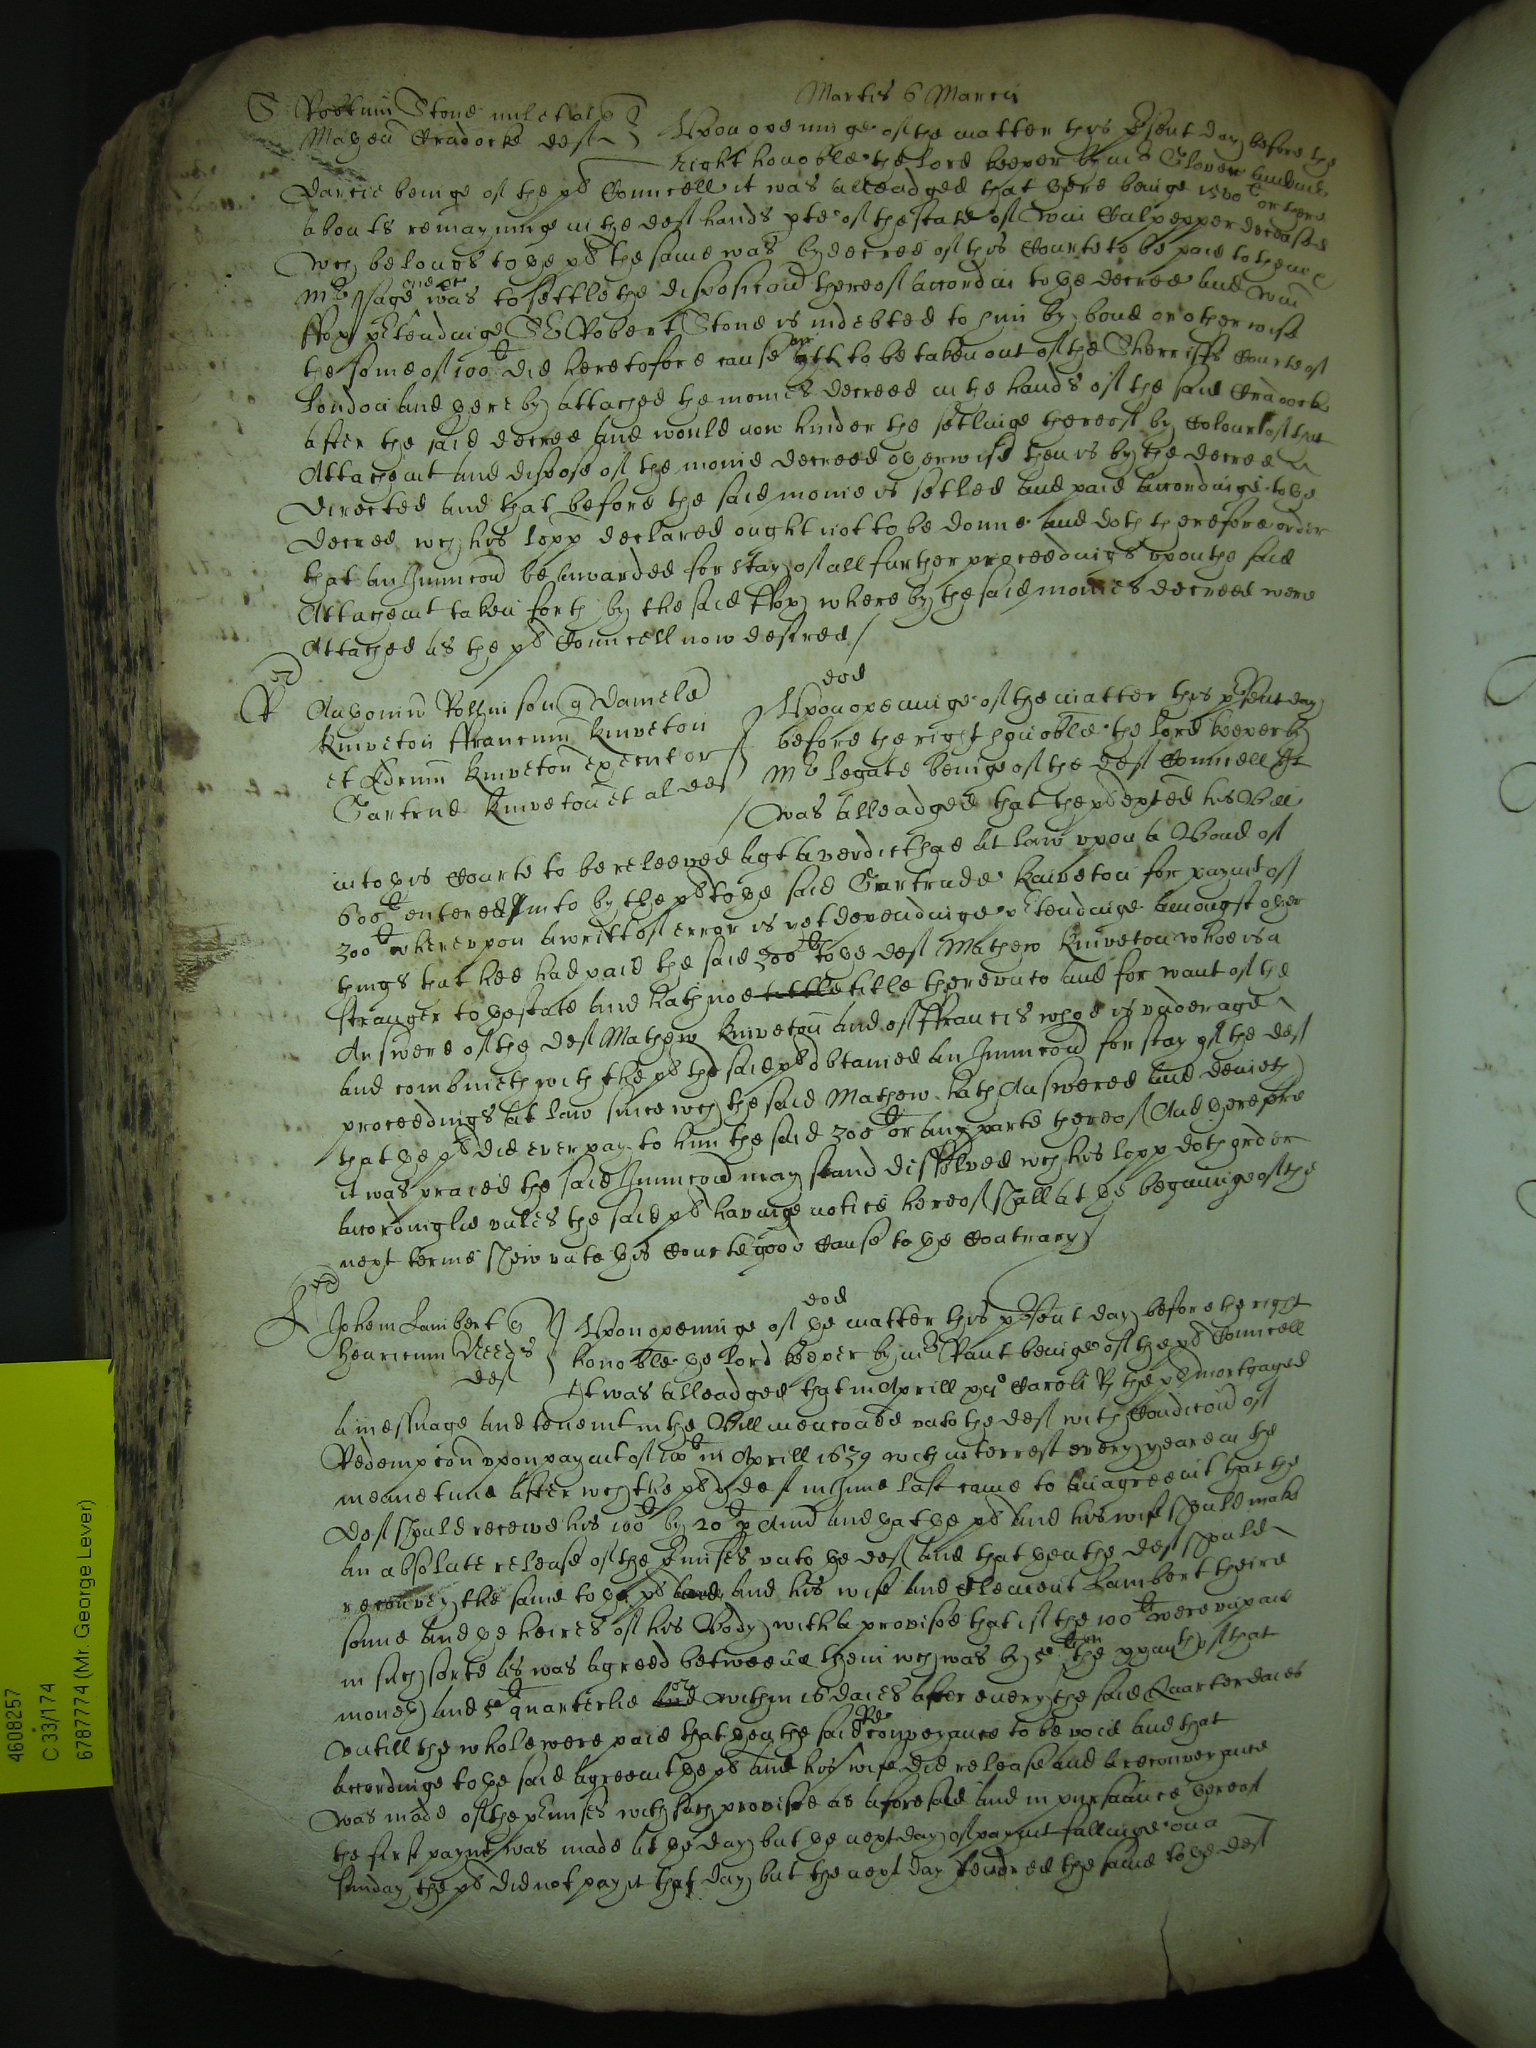 Martis 6 Marcii
S Robtum Stone mil et al q
Matheu Cradocke def
Upon openinge of the matter this psent day before the
right honoble the lord keeper by mr Glover and mr
Darcie beinge of the pls Councell it was alleadged that there beinge 1500l or there
abouts remayninge in the defts hands pte of the state of Wm Culpepper deceased
wch belongs to the pls the same was by decree of this Courte to be paid to them
mr Page one of was to settle the disposicon thereof accordin to the decree And Wm
ffox ptendinge Sr Robert Stone is indebted to him by bond or otherwise
the some of 100l did heretofore cause an Att to be taken out of the Sherriffs Courte of
London and thereby attached the monies decreed in the hands of the said Cradocke
after the said decree and would now hinder the setlinge thereof by Colour of that
Attachemt and dispose of the monie decreed otherwise then is by the decree
directed and that before the said monie is setled and paid accordinge to the
decree wch his lopp declared ought not to be donne and doth therefore order
that an Iniunccon be awarded for stay of all further proceedings upon the said
Attachemt taken forth by the said ffox whereby the said monies decreed were
Attached as the pls Councell now desired
R
Anthoniu Rollinson q Daniele
Kniveton ffranciscu Kniveton
et Edrum Kniveton executor
Gartrude Kniveton et al def
eod
Upon openinge of the matter this psent day
before the right honoble the lord keeper by
Mr Legate beinge of the defts Councell It
was alleadged that the pl exhted his Bill
into this Courte to be releeved agt a verdict had at law upon a Bond of
600l entered into by the pl to the said Gartrude Kniveton for paymt of
300l whereupon a writt of error is yet dependinge ptendinge amongst other
things that hee had paid the said 300l to the deft Mathew Kniveton whoe is a
stranger to the state and hath noe title title thereunto and for want of the
Answere of the deft Mathew Kniveton and of ffrancis whoe is under age
and combineth with the pl the said pl obtained an Iniunccon for stay of the defts
proceedings at law since wch the said Mathew hath Answered and denieth
that the pl did ever pay to him the said 300l or any parte thereof And therefore
it was praied the said Iniunccon may stand dissolved wch his lopp doth order
accordinglie unles the said pl havinge notice hereof shall at the beginninge of the
next terme shew unto this Courte good Cause to the Contrary
L
Johem Lambert q
Henricum Reeds
def
eod
Upon openinge of the matter this psent day before the right
honoble the lord keeper by mr Pant beinge of the pls Councell
It was alleadged that in Aprill Caroli R the pl mortgaged
a messuage and tenemt in the Bill menconed unto the deft with Condicon of
Redempcon upon paymt of 100l in Aprill 1639 with interrest every yeare in the
meane time after wch the pl & deft in June last came to an agreemt that the
deft should receive his 100l by 20l p Ann and that the pl and his wife should make
an absolute release of the pmisses unto the deft and that then the deft should
reconvey the same to the pl and and his wife and Clement Lambert theire
sonne and the heires of his Body with a provisoe that if the 100l were unpaid
in such sorte as was agreed betweene them wch was by 5l in the of that
money and 5l quarterlie and or within 16 daies after every the said Quarter daies
untill the whole were paid that then the said Reconveyance to be void and that
accordinge to the said agreemt the pl and his wife did release and a reconveyance
was made of the pmisses with such provisoe as aforesaid and in pursuance thereof
the first paymt was made at the day but the next day of paymt fallinge on a
Sunday the pl did not pay it that day but the next day tendred the same to the deft
4608257
C 33/174
6787774 (Mr. George Lever)